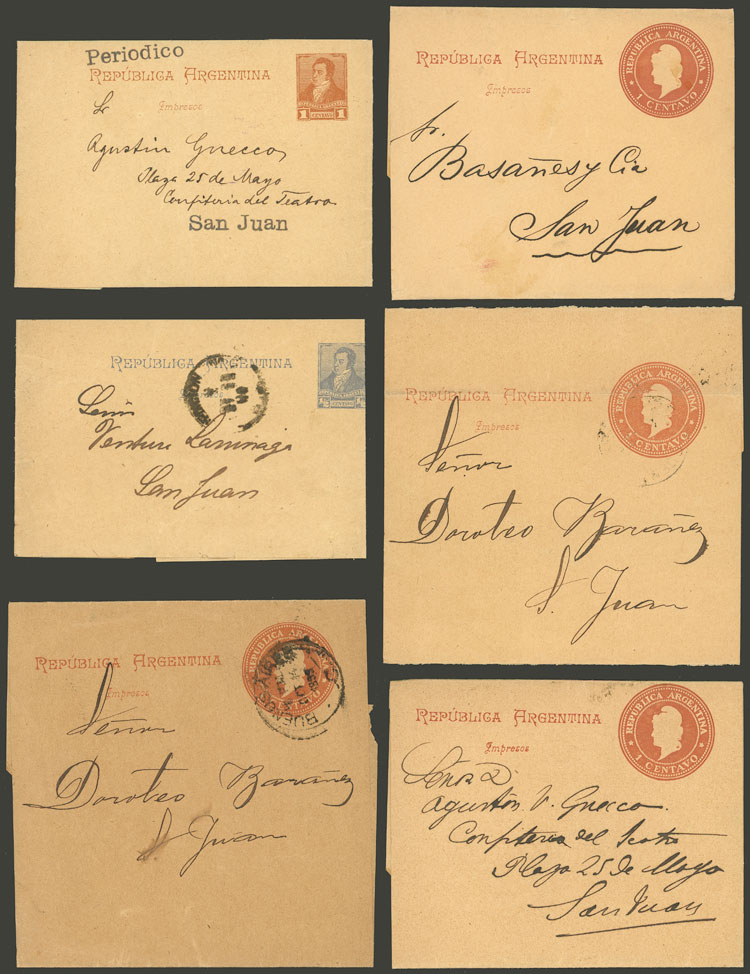 Periodico
REPÚBLICA ARGENTINA
Impresos
1 CENTAVO 1
Sr
Agustin Gnecco
Plaza 25 de Mayo
Confiteria del Teatro
San Juan
REPÚBLICA ARGENTINA
Impresos
REPUBLICA ARGENTINA
1 CENTAVO
Sr.
Basañes y Cia
San Juan
REPÚBLICA ARGENTINA
Señor
Ventura
San Juan
REPÚBLICA ARGENTINA
Impresos
REPUBLICA ARGENTINA
1 CENTAVO
Señor
Doroteo Barañez
S. Juan
REPÚBLICA ARGENTINA
Impresos
REPUBLICA ARGENTINA
CENTAVO
BUENOS AIRES
Señor
Doroteo Barañez
S. Juan
REPÚBLICA ARGENTINA
Impresos
REPUBLICA ARGENTINA
1 CENTAVO
Señor D
Agustin V. Gnecco.
Confiteria del Teatro
Plaza 25 de Mayo
San Juan